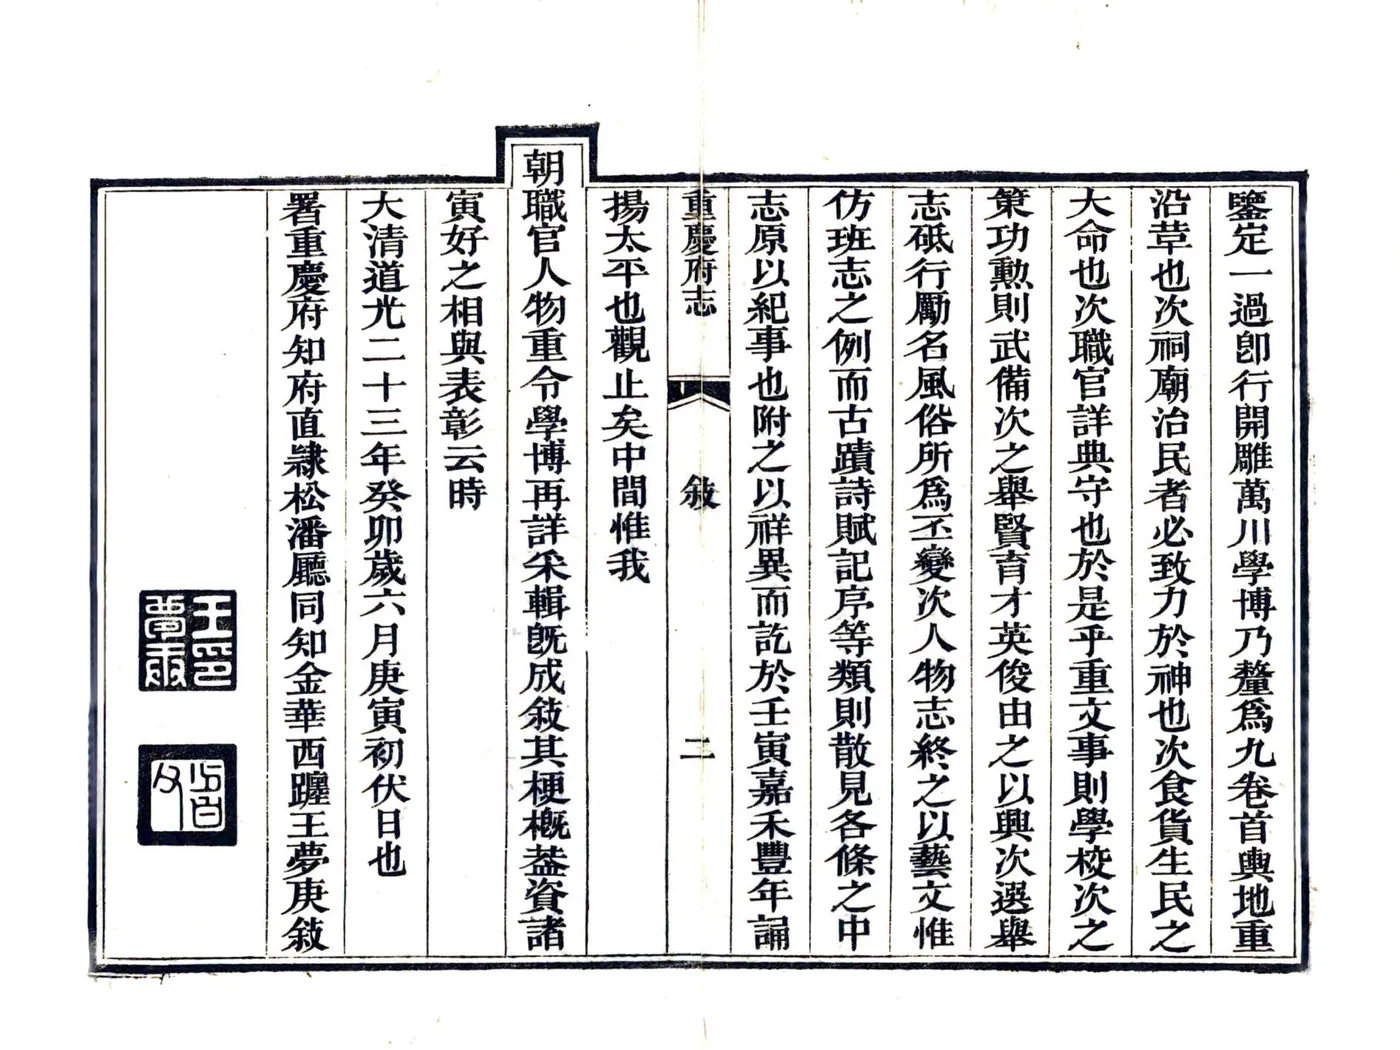 鑒定一過卽行開雕萬川學博乃釐爲九卷首輿地重
沿革也次祠廟治民者必致力於神也次食貨生民之
大命也次職官詳典守也於是乎重文事則學校次之
策功勲則武備次之舉賢育才英俊由之以興次選舉
志砥行勵名風俗所爲丕變次人物志終之以藝文惟
仿班志之例而古蹟詩賦記序等類則散見各條之中
志原以紀事也附之以祥異而訖於壬寅嘉禾豐年誦
重慶府志 敘 二
揚太平也觀止矣中間惟我
朝職官人物重令學博再詳采輯旣成敘其梗槪葢資諸
寅好之相與表彰云時
大清道光二十三年癸卯歲六月庚寅初伏日也
署重慶府知府直隷松潘廳同知金華西躔王夢庚敘